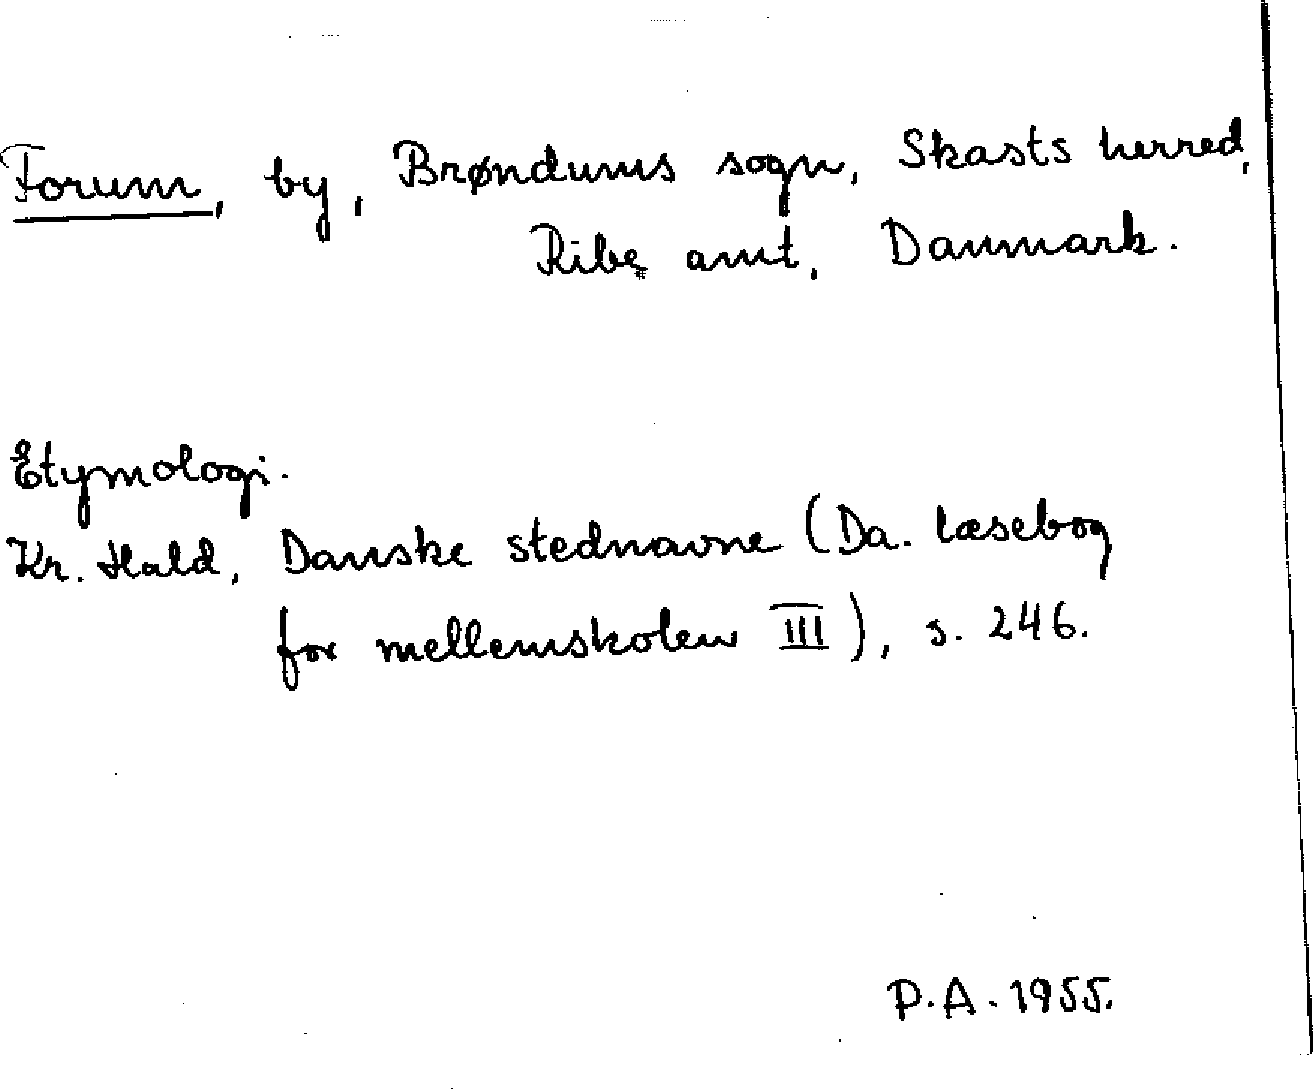 Forum, by, Brøndums sogn, Skasts herred,
Ribe amt, Danmark.
Etymologi.
Kr. Hald, Danske stednavne (Da. læsebog
for mellemskolen III), s. 246.
P.A. 1955.